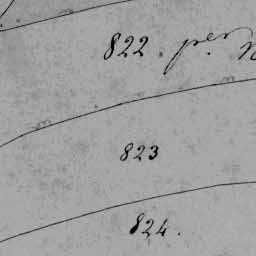 822. per
823
824.